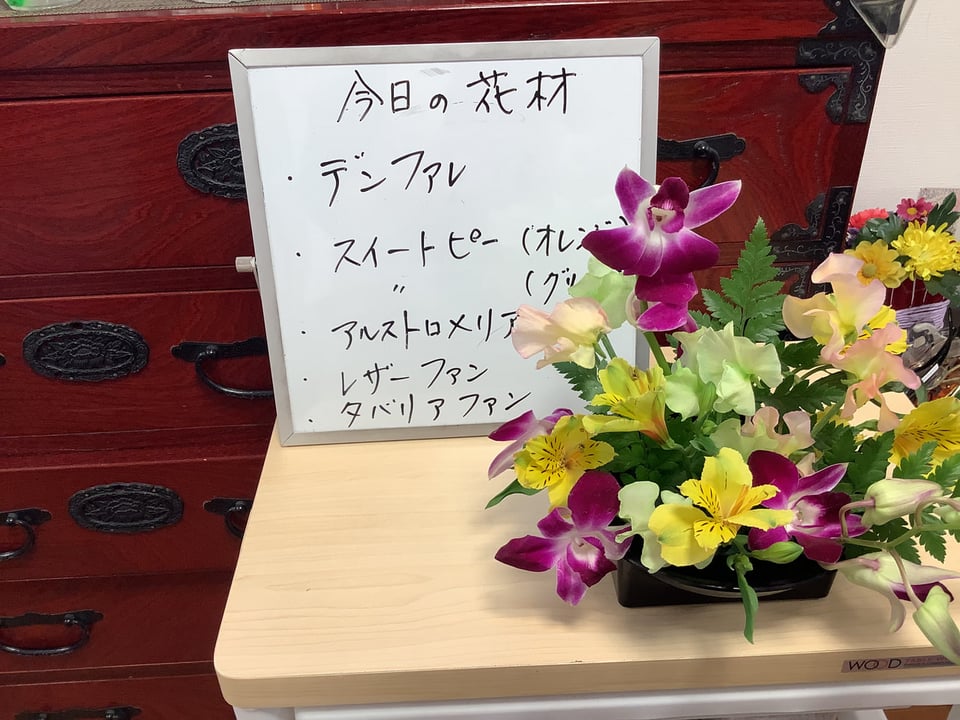 今日の花材
・デンファレ
・スイートピー (オレン
〃 (グリ
・アルストロメリア
・レザーファン
・タバリアファン
WOOD